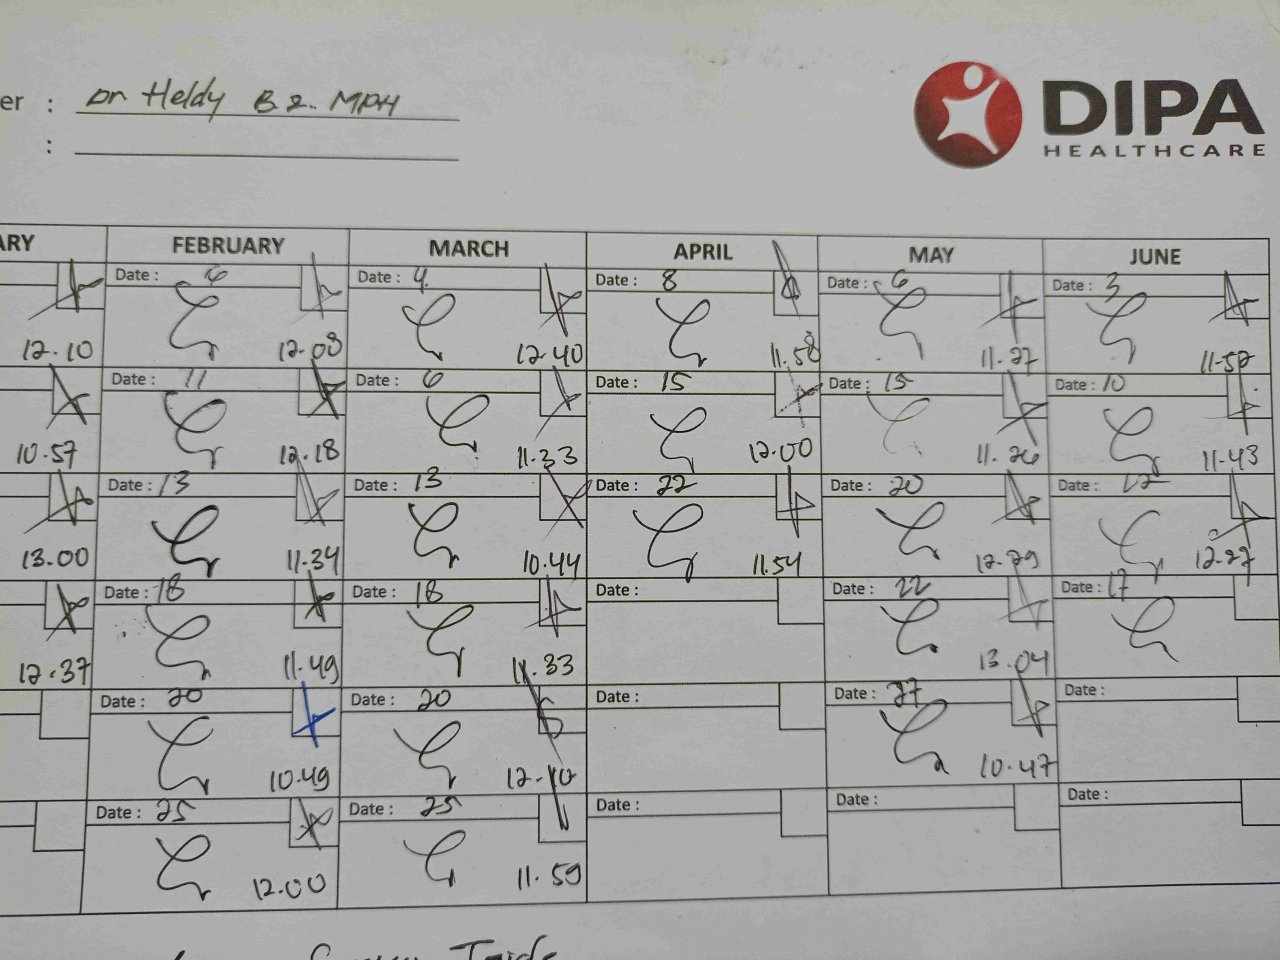 er : Dr Heldy B2. MPH
:
DIPA
HEALTHCARE
ARY FEBRUARY MARCH APRIL MAY JUNE
Date : 6 Date : 4 Date : 8 Date : 6 Date : 3
12.10 12.08 12.40 11.58 11.27 11.52
Date : 11 Date : 6 Date : 15 Date : 15 Date : 10
10.57 12.18 11.33 12.00 11.26 11.43
Date : 13 Date : 13 Date : 22 Date : 20 Date : 12
13.00 11.34 10.44 11.54 12.29 12.27
Date : 18 Date : 18 Date : Date : 22 Date : 17
12.37 11.49 11.33 13.04
Date : 20 Date : 20 Date : Date : 27 Date :
10.49 12.10 10.47
Date : 25 Date : 25 Date : Date : Date :
12.00 11.59